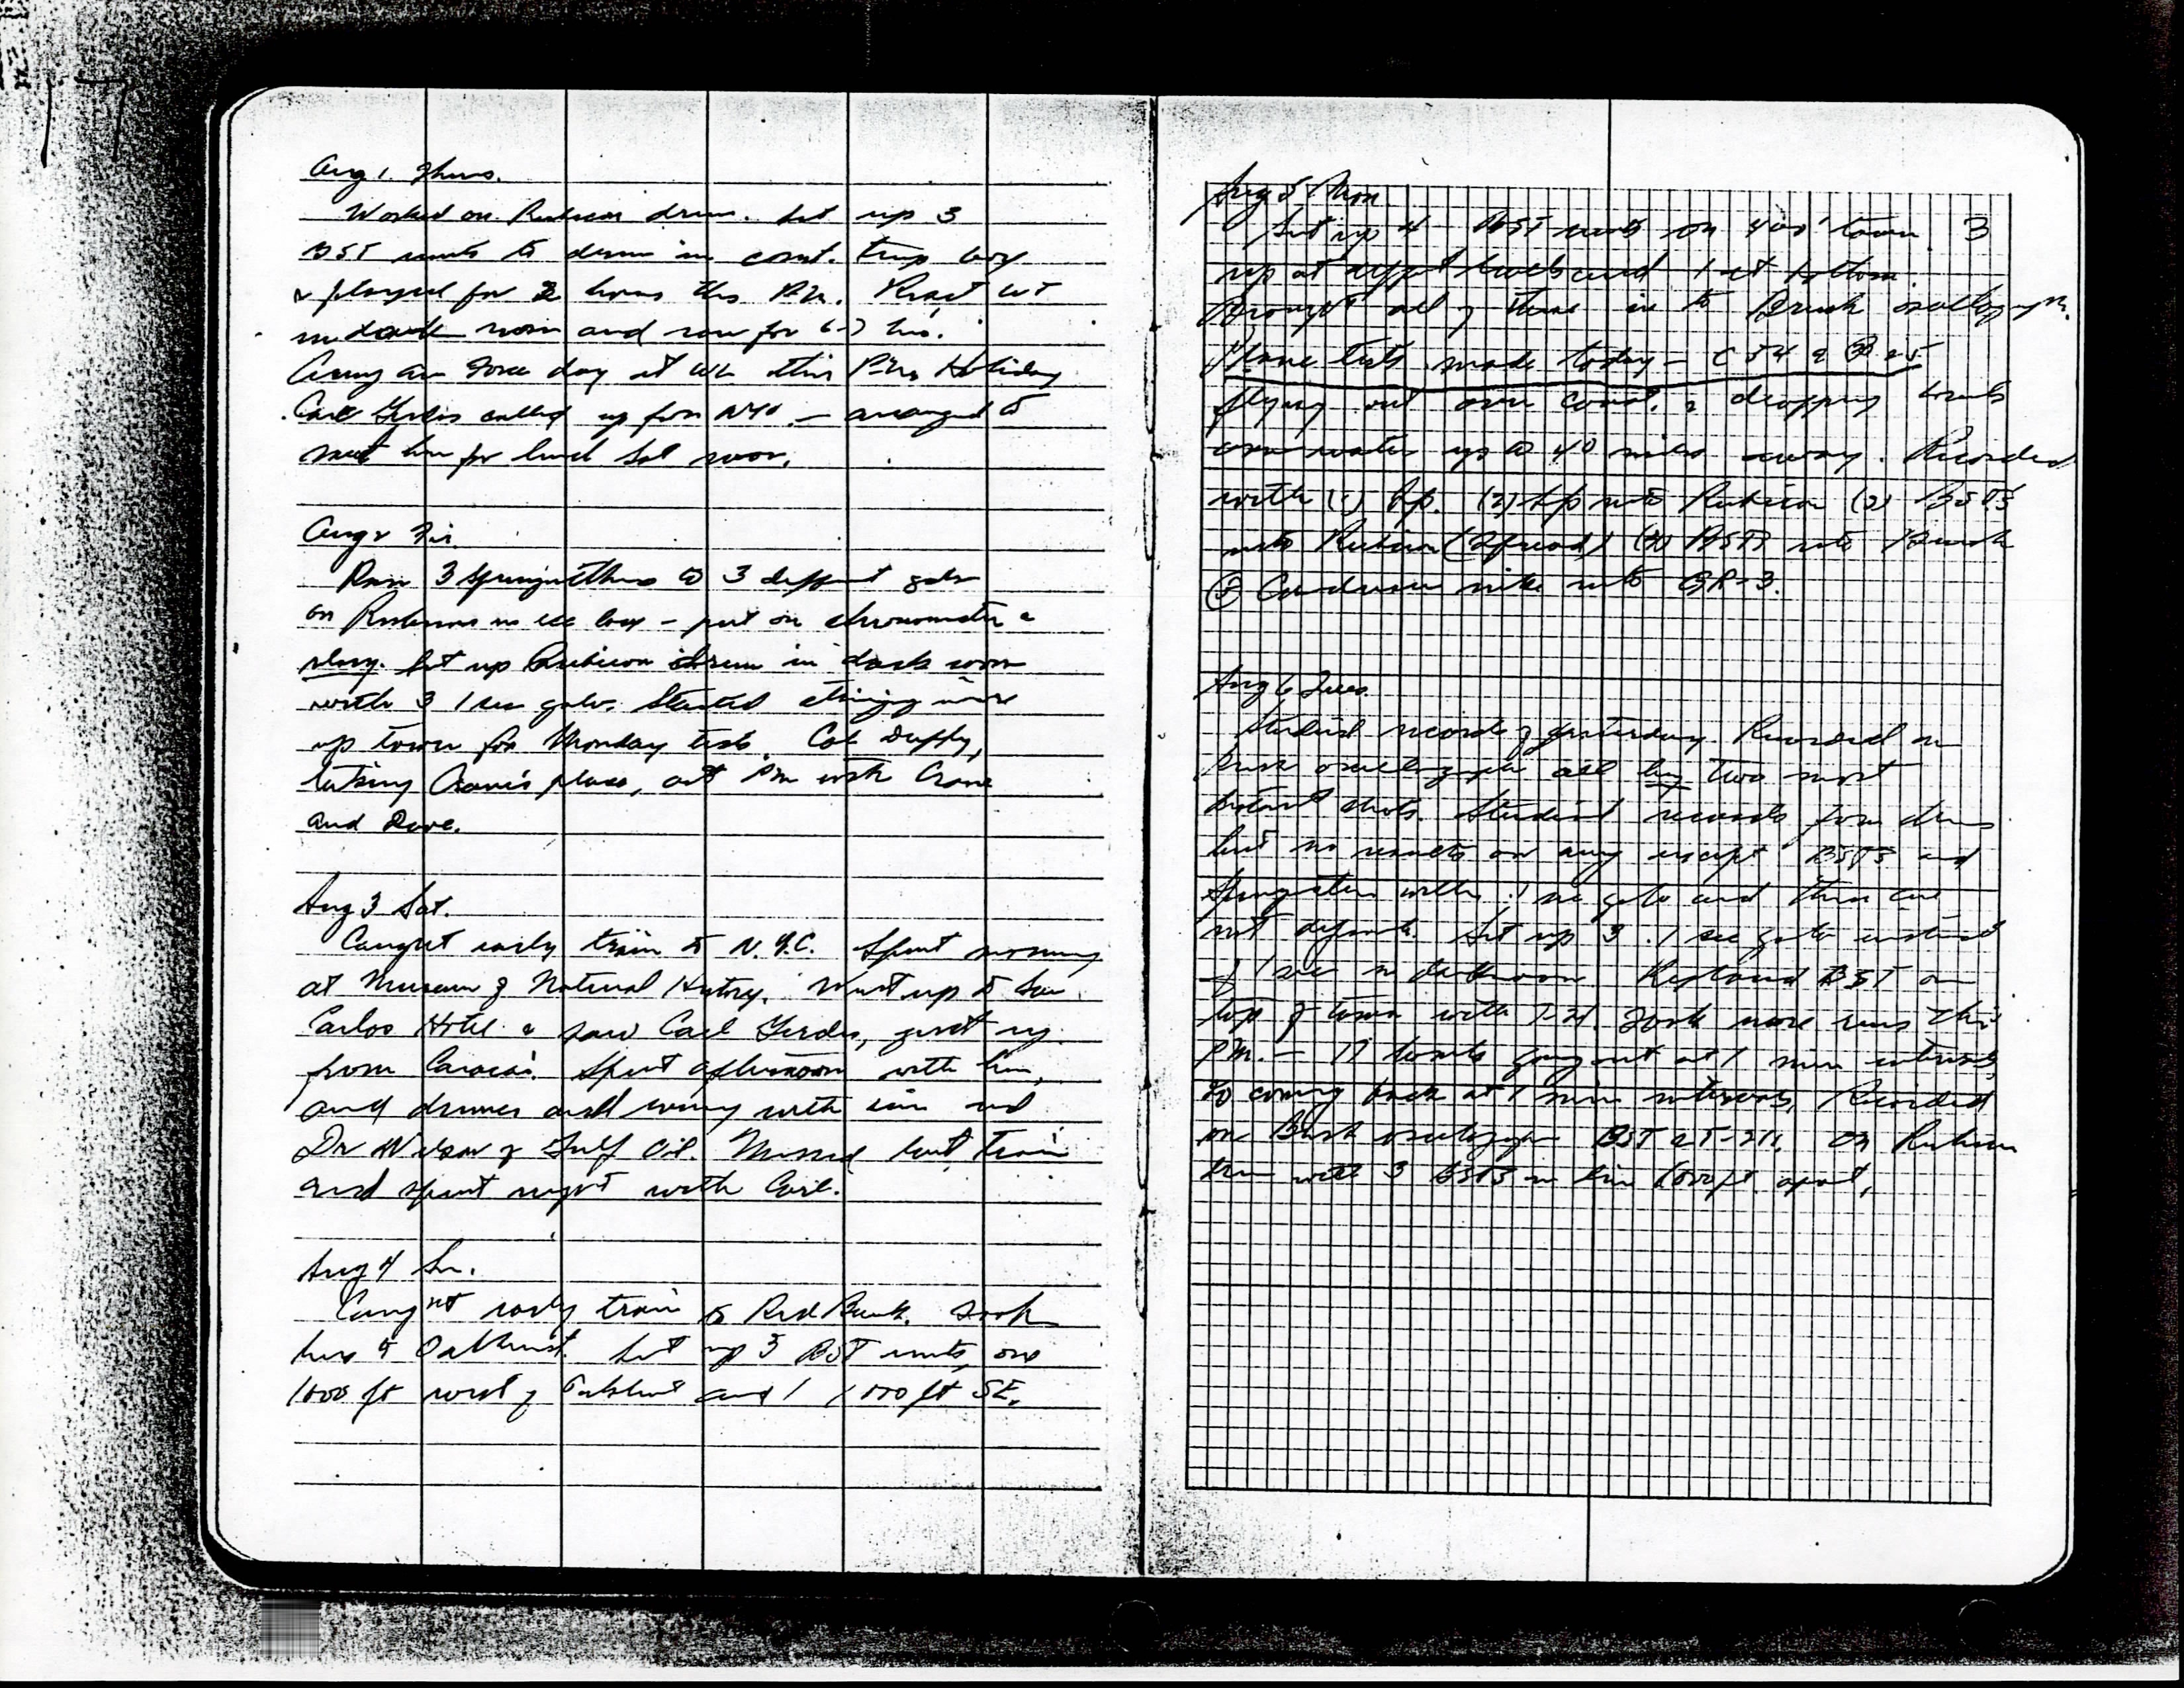 Aug 1. Thurs.
Worked on Rubicon drum. Set up 3
BST units to drum in const. temp box
& played for 2 hours this P.M. React WT
in dark room and ran for 6-7 hrs.
Army air Force day at WL this P.M. Holiday
Carl called up from NYC. — arranged to
meet him for lunch Sat noon.
Aug 2 Fri.
Ran 3 Spengnethers to 3 different galv
on Rubicons in ice box – put on chronometer &
relay. Set up Rubicon drum in dark room
with 3 1 sec galv. Started stringing wire
up tower for Monday tests. Col Duffy,
taking Crane's place, out PM with Crane
and Dave.
Aug 3 Sat.
Caught early train to N.Y.C. Spent morning
at Museum of Natural History. Went up to San
Carlos Hotel & saw Carl, just up
from Caracas. Spent afternoon with him,
and dinner and evening with him and
Dr Wilson of Gulf Oil. Missed last train
and spent night with Carl.
Aug 4 Su.
Caught early train to Red Bank. Took
bus to Oakhurst. Set up 3 BST units, one
1000 ft west of Oakhurst and 1 1000 ft SE.
Aug 5 Mon.
Set up 4 BST units on 400' tower. 3
up at different levels and 1 at bottom.
Brought all of these in to Brush oscillograph.
Plane tests made today – C 54 &
flying out over coast & dropping bombs
over water up to 40 miles away. Recorded
with (1) Sp. (2) Sp into Rubicon (3) BSTs
into Rubicon (Spread) (4) BSTs into Brush
(5) mike into GR-3.
Aug 6 Tues.
Studied records of yesterday. Recorded on
Brush oscillograph all but two most
distant shots. Studied records from drums
but no results on any except BSTs and
Spengnether with .1 sec galv and these are
not definite. Set up 3 .1 sec galv instead
of 1 sec in darkroom. Replaced BST on
top of tower with T-21. Took more runs this
P.M. — 17 bombs going out at 1 min intervals,
coming back at 1 min intervals. Recorded
on Brush oscillograph BST & T-21. On Rubicon
drum with 3 BSTs in line 1000 ft. apart,